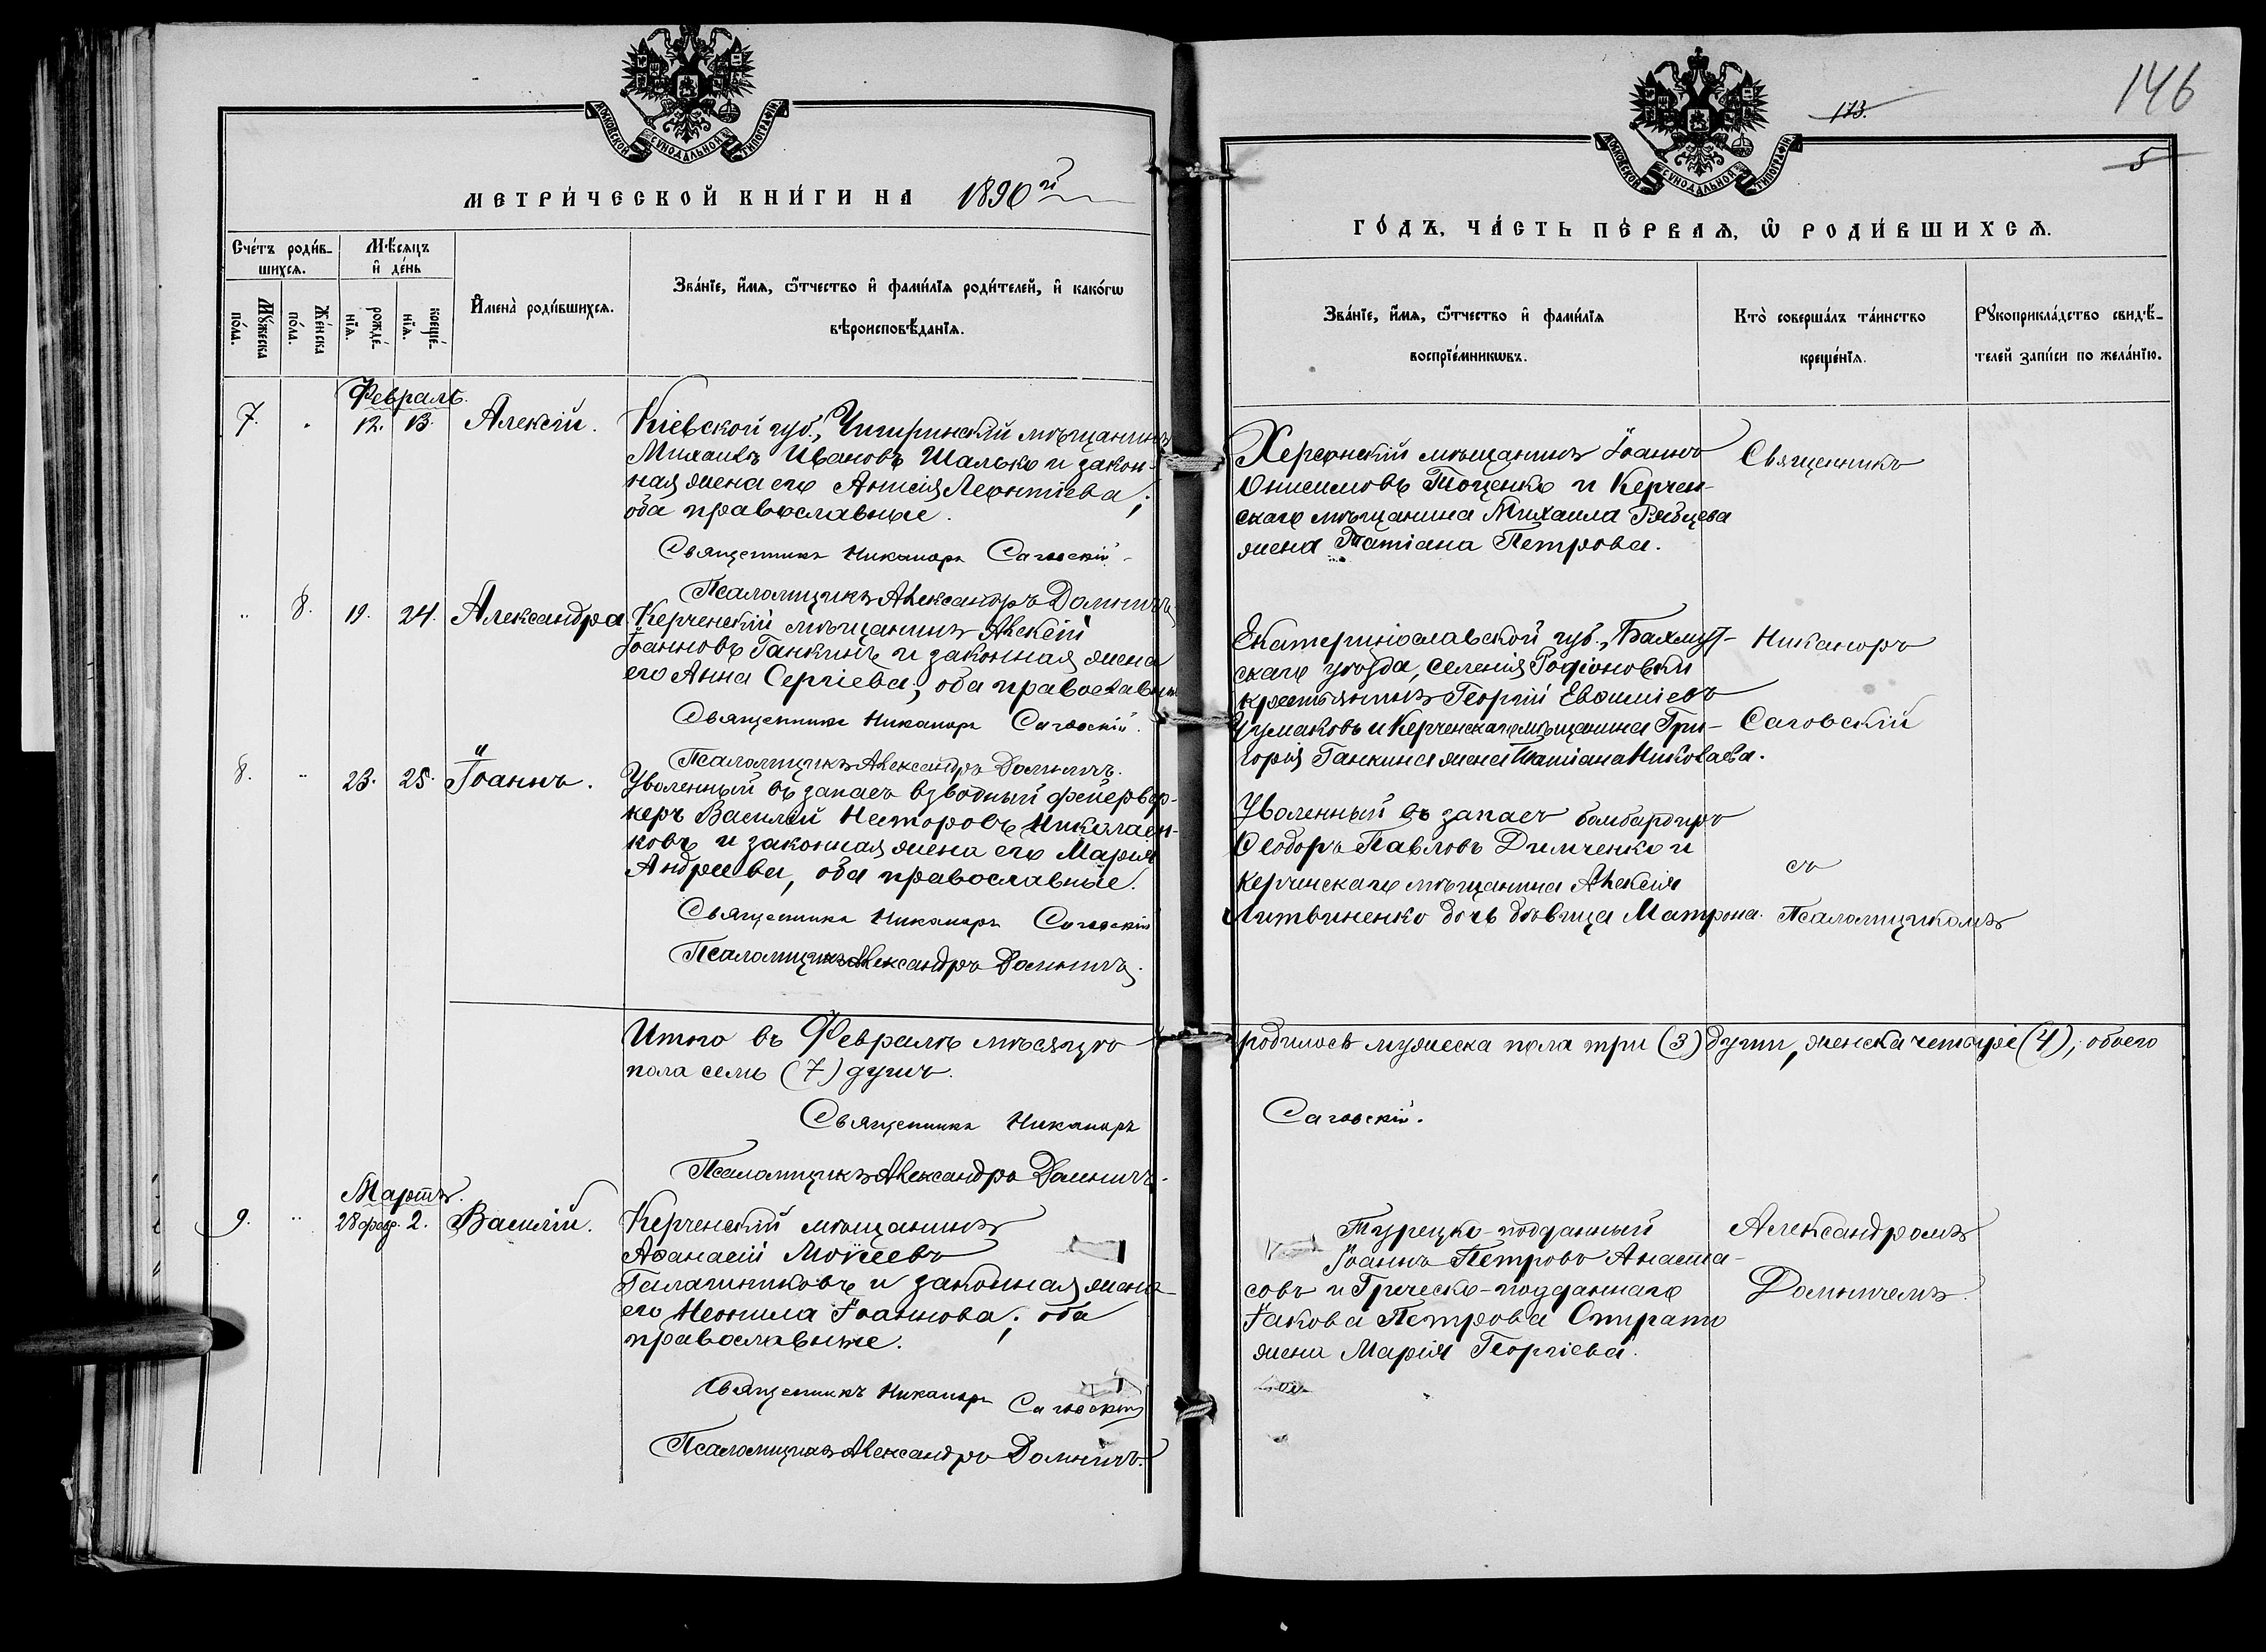 МОСКОВСКОЙ СУНОДАЛЬНОЙ ТИПОГРАФІИ
МЕТРИ́ЧЕСКОЙ КНИ́ГИ НА 1890й
Сче́тъ роди́в-
шихсѧ.
Мѣ́сѧцъ
и҆ де́нь
Мꙋ́жеска по́ла.
Же́нска по́ла.
рожде́-нїѧ.
креще́-нїѧ.
И҆мена̀ роди́вшихсѧ.
Зва́нїе, и҆́мѧ, ѻ҆́тчество и҆ фами́лїѧ роди́телей, и҆ како́гѡ
вѣроисповѣ́данїѧ.
Февраль.
7. 12. 13. Алексій. Кіевской губ., Чигиринскій мѣщанинъ
Михаилъ Ивановъ Шалько и закон-
ная жена его Анисія Леонтіева;
оба православные.
Священникъ Никаноръ Саговскій
Псаломщикъ Александръ Домничъ
8. 19. 24. Александра Керченскій мѣщанинъ Алексій
Іоанновъ Ганкинъ и законная жена
его Анна Сергіева; оба православные
Священникъ Никаноръ Саговскій.
Псаломщикъ Александръ Домничъ.
8. 23. 25. Іоаннъ. Уволенный въ запасъ взводный фейервер-
керъ Василій Несторовъ Николаен-
ковъ и законная жена его Марія
Андреева, оба православные.
Священникъ Никаноръ Саговскій
Псаломщикъ Александръ Домничъ.
Итого въ Февралѣ мѣсяцѣ
пола семь (7) душъ.
Священникъ Никаноръ
Псаломщикъ Александръ Домничъ.
Мартъ.
9. 28 февр. 2. Василій. Керченскій мѣщанинъ
Аѳанасій Моѵсеевъ
Галашниковъ и законная жена
его Неонила Іоаннова; оба
православные.
Священникъ Никаноръ Саговскій
Псаломщикъ Александръ Домничъ.
146
173.
5
МОСКОВСКОЙ СУНОДАЛЬНОЙ ТИПОГРАФІИ
ГО́ДЪ, ЧА́СТЬ ПЕ́РВАѦ, Ѡ҆ РОДИ́ВШИХСѦ.
Зва́нїе, и҆́мѧ, ѻ҆́тчество и҆ фами́лїѧ
воспрїе́мникѡвъ.
Кто̀ соверша́лъ та́инство
креще́нїѧ.
Рꙋкоприкла́дство свидѣ́-
телей за́писи по жела́нїю.
Херсонскій мѣщанинъ Іоаннъ
Онисимовъ Тоценко и Керчен-
скаго мѣщанина Михаила Рябцева
жена Татіана Петрова.
Священникъ
Екатеринославской губ., Бахмут-
скаго уѣзда, селенія Родіоновки
крестьянинъ Георгій Евѳиміевъ
Чумаковъ и Керченскаго мѣщанина Гри-
горія Ганкина жена Татіана Николаева.
Никаноръ
Саговскій
Уволенный въ запасъ бомбардиръ
Ѳеодоръ Павловъ Димченко и
керченскаго мѣщанина Алексія
Литвиненко дочь дѣвица Матрона.
съ
Псаломщикомъ
родилось мужеска пола три (3) души, женска четыре (4), обоего
Саговскій.
Турецко-подданный
Іоаннъ Петровъ Анаста-
совъ и Греческо-подданнаго
Іакова Петрова Спирати
жена Марія Георгіева.
Александромъ
Домничемъ.